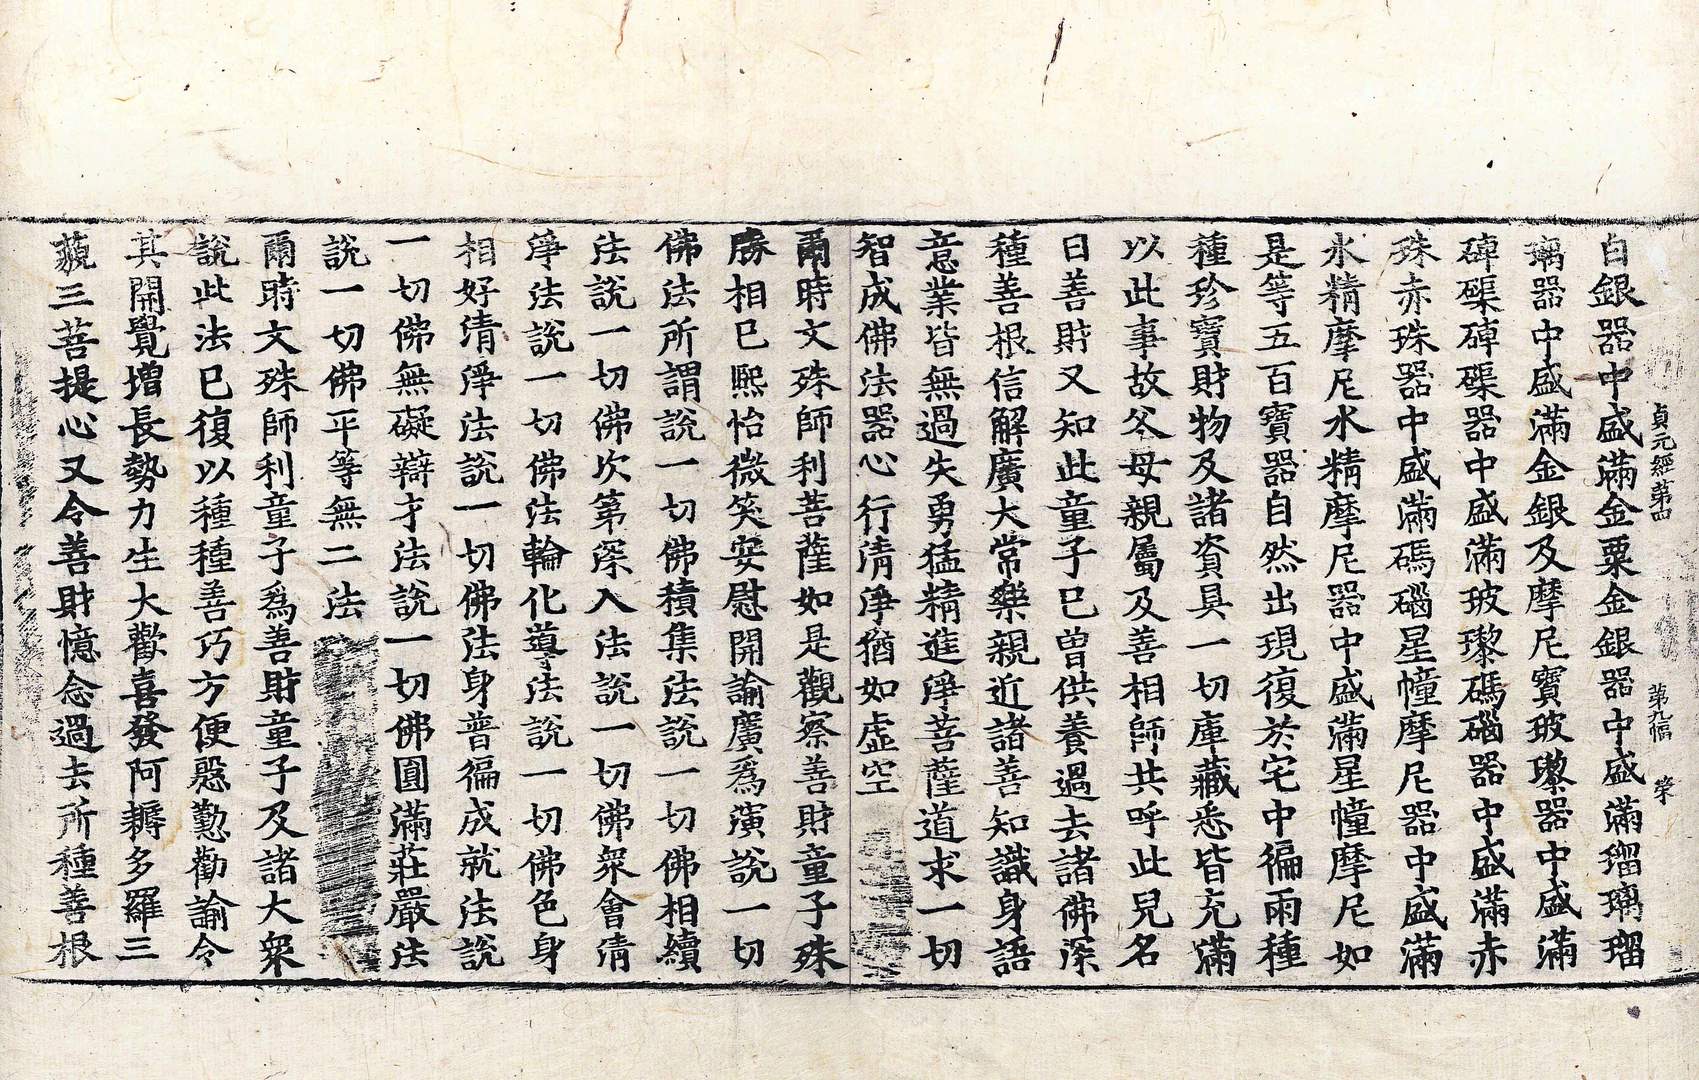 白銀器中盛滿金粟金銀器中盛滿瑠璃瑠
璃器中盛滿金銀及摩尼寶玻瓈器中盛滿
硨磲硨磲器中盛滿玻瓈碼碯器中盛滿赤
珠赤珠器中盛滿碼碯星幢摩尼器中盛滿
水精摩尼水精摩尼器中盛滿星幢摩尼如
是等五百寶器自然出現復於宅中徧雨種
種珍寶財物及諸資具一切庫藏悉皆充滿
以此事故父母親屬及善相師共呼此兒名
曰善財又知此童子已曾供養過去諸佛深
種善根信解廣大常樂親近諸善知識身語
意業皆無過失勇猛精進淨菩薩道求一切
智成佛法器心行清淨猶如虛空
爾時文殊師利菩薩如是觀察善財童子殊
勝相已熙怡微笑安慰開諭廣爲演說一切
佛法所謂說一切佛積集法說一切佛相續
法說一切佛次第深入法說一切佛衆會清
淨法說一切佛法輪化導法說一切佛色身
相好清淨法說一切佛法身普徧成就法說
一切佛無礙辯才法說一切佛圓滿莊嚴法
說一切佛平等無二法
爾時文殊師利童子爲善財童子及諸大衆
說此法已復以種種善巧方便慇懃勸諭令
其開覺增長勢力生大歡喜發阿耨多羅三
藐三菩提心又令善財憶念過去所種善根
貞元經第四 第九幅 榮